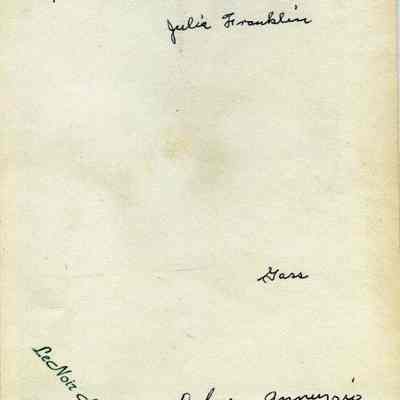 Julia Franklin
Gass
LeNoir
Annunzio